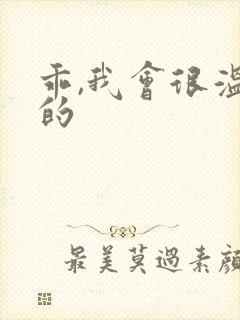 乖,我會很溫
的
最美莫過素顏